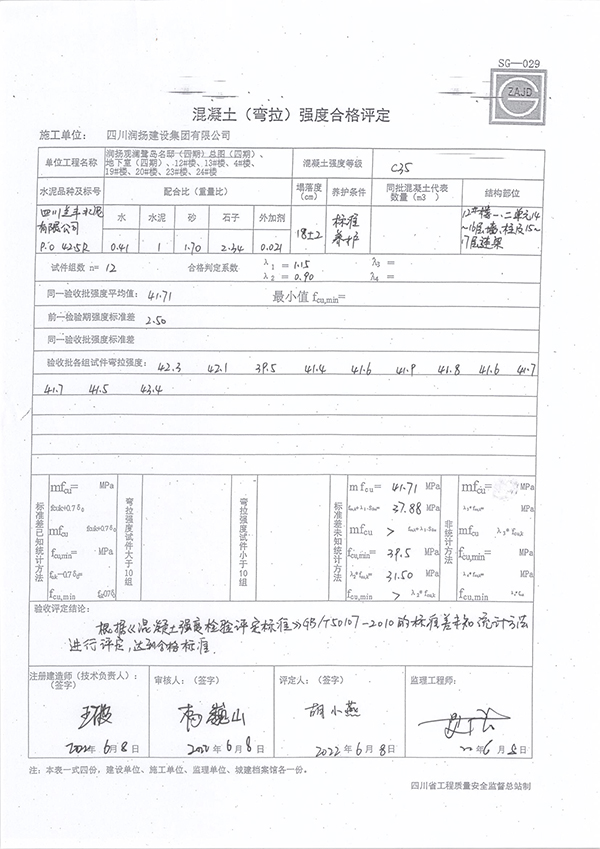 SG—029
ZAJD
混凝土（弯拉）强度合格评定
施工单位： 四川润扬建设集团有限公司
单位工程名称 润扬观澜鹭岛名邸（四期）总图（四期）、地下室（四期）、12#楼、13#楼、4#楼、19#楼、20#楼、23#楼、24#楼 混凝土强度等级 C35
水泥品种及标号 配合比（重量比） 塌落度（cm） 养护条件 同批混凝土代表数量（m3 ） 结构部位
水 水泥 砂 石子 外加剂
有限公司 P.O 42.5R 0.41 1 1.70 2.34 0.021 18±2 标准养护 12#楼一、二单元14~16层墙、柱及15~17层连梁
试件组数 n= 12 合格判定系数 λ1 = 1.15 λ3 =
λ2 = 0.90 λ4 =
同一验收批强度平均值： 41.71 最小值 fcu,min=
前一检验期强度标准差 2.50
同一验收批强度标准差
验收批各组试件弯拉强度： 42.3 42.1 39.5 41.4 41.6 41.9 41.8 41.6 41.7
41.7 41.5 43.4
标准差已知统计方法 mfcu= MPa
fcuk+0.7δ0
mfcu fcuk+0.7δ0
fcu,min= MPa
fcu,min
弯拉强度试件大于10组
弯拉强度试件小于10组
标准差未知统计方法 mfcu= 41.71 MPa
37.88 MPa
mfcu >
fcu,min= 39.5 MPa
31.50 MPa
fcu,min >
非统计方法 mfcu= MPa
MPa
mfcu
fcu,min= MPa
MPa
fcu,min
验收评定结论：
根据《混凝土强度检验评定标准》GB/T50107-2010的标准差未知统计方法
进行评定，达到合格标准.
注册建造师（技术负责人）：（签字） 审核人：（签字） 评定人：（签字） 监理工程师：
胡小燕
2022年6月8日 年6月8日 2022年6月8日 年6月8日
注：本表一式四份，建设单位、施工单位、监理单位、城建档案馆各一份。
四川省工程质量安全监督总站制